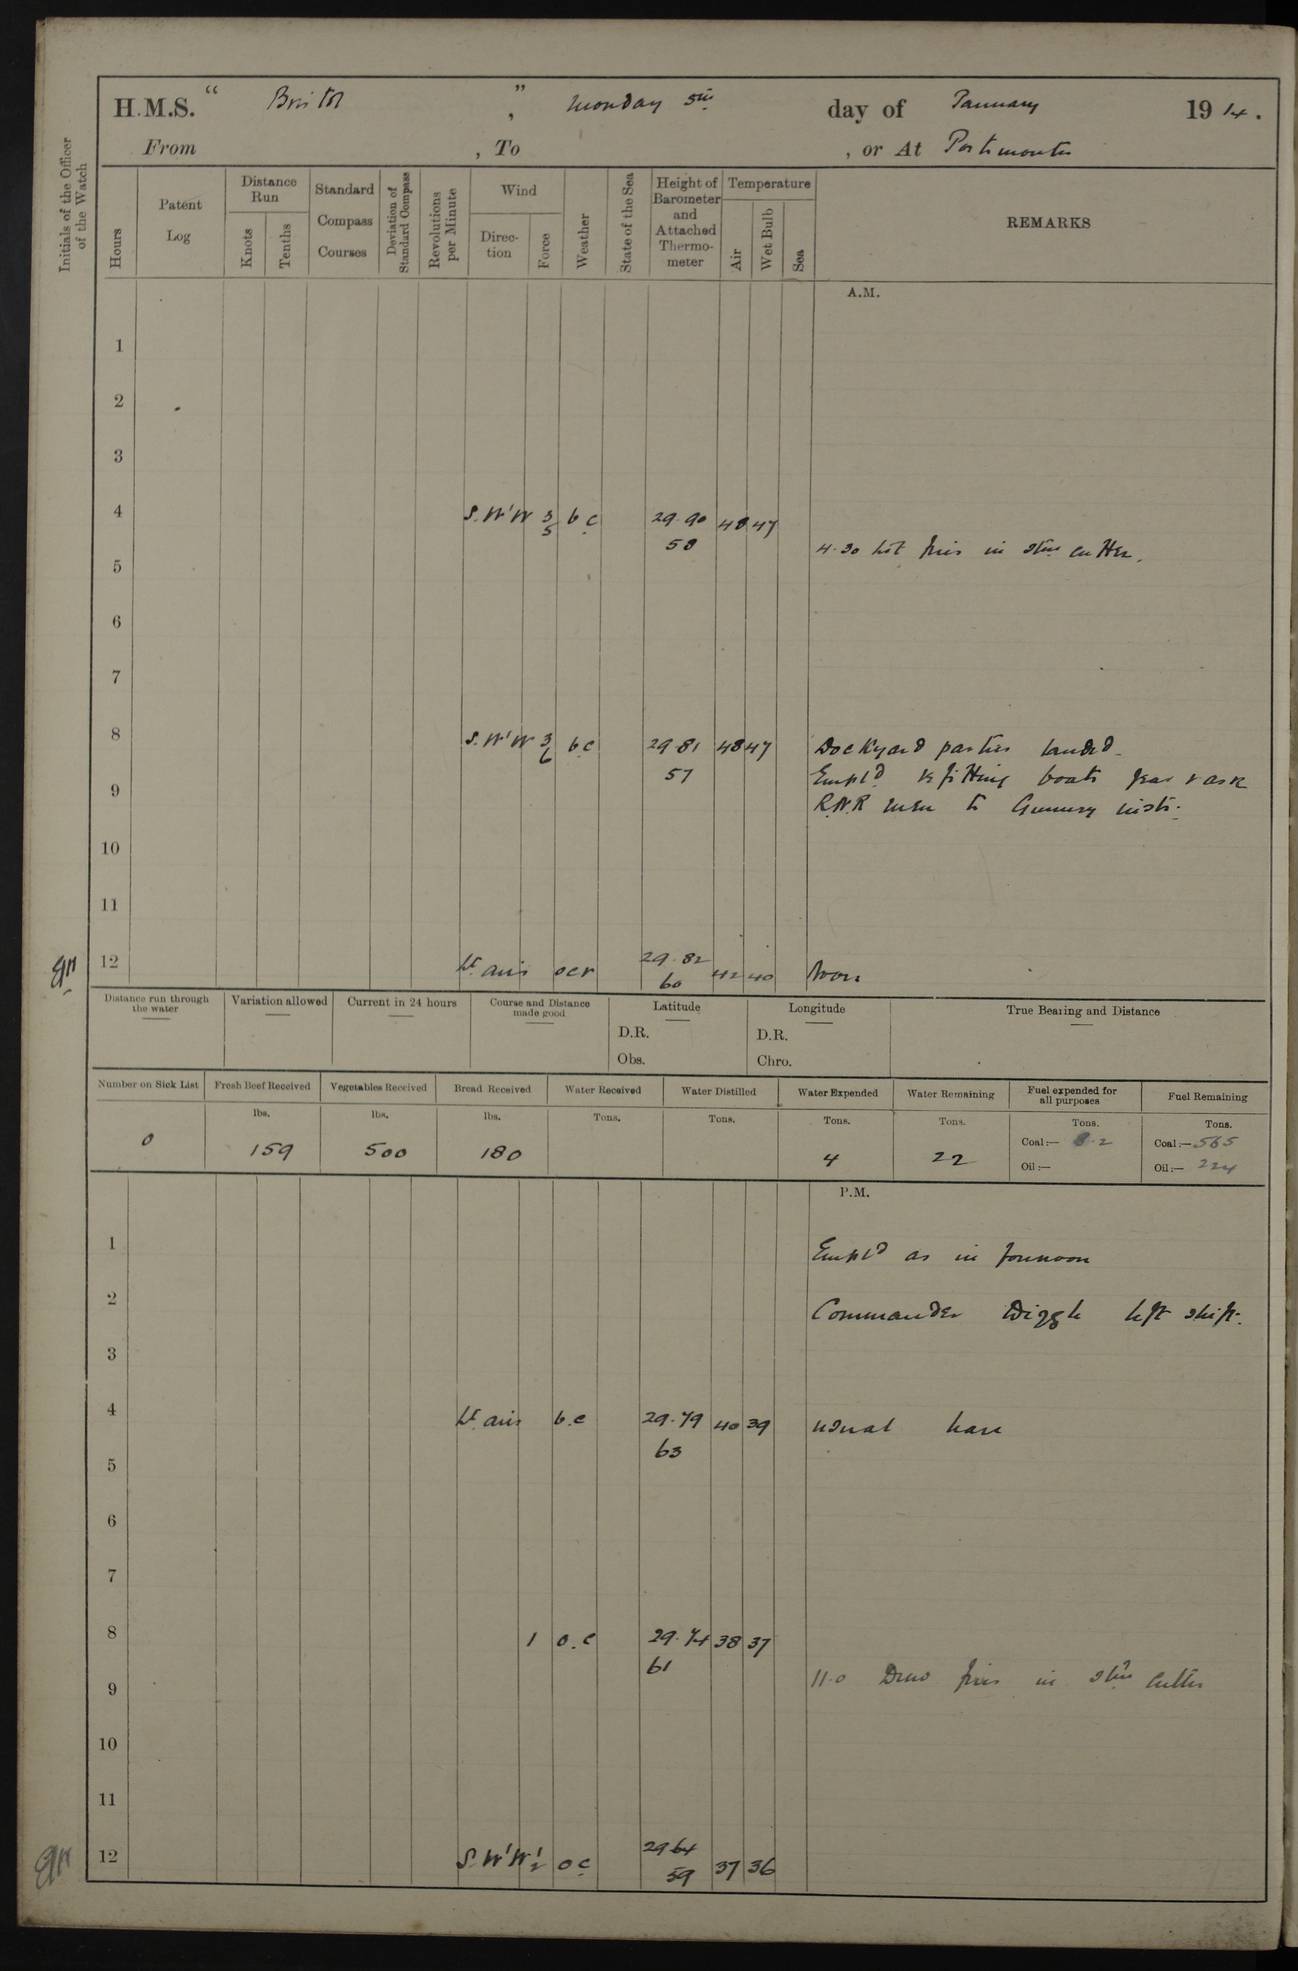 H.M.S. “ Bristol ”, Monday 5th day of January 1914.
From , To , or At Portsmouth
Initials of the Officer of the Watch
Hours
Patent Log
Distance Run
Knots
Tenths
Standard Compass Courses
Deviation of Standard Compass
Revolutions per Minute
Wind
Direction
Force
Weather
State of the Sea
Height of Barometer and Attached Thermometer
Temperature
Air
Wet Bulb
Sea
REMARKS
A.M.
1
2
3
4 S.W'W 3/5 b c 29.90 48 47
58
4.30 lit fires in stm cutter.
5
6
7
8 S.W'W 3/6 b.c 29 81 48 47 Dockyard parties landed.
57 Empl'd refitting boats gear & ask
9
R.N.R men to Gunnery instr.
10
11
12 Lt airs ocr 29.82 42 40 Noon
60
Distance run through the water
Variation allowed
Current in 24 hours
Course and Distance made good
Latitude
D.R.
Obs.
Longitude
D.R.
Chro.
True Bearing and Distance
Number on Sick List
0
Fresh Beef Received
lbs.
159
Vegetables Received
lbs.
500
Bread Received
lbs.
180
Water Received
Tons.
Water Distilled
Tons.
Water Expended
Tons.
4
Water Remaining
Tons.
22
Fuel expended for all purposes
Tons.
Coal:— 8.2
Oil:—
Fuel Remaining
Tons.
Coal:— 565
Oil:— 224
P.M.
1 Empl'd as in forenoon
2 Commander Diggle left ship.
3
4 Lt airs b.c 29.79 40 39 usual leave
63
5
6
7
8 1 o.c 29.74 38 37
61
11.0 Drew fires in stm cutter
9
10
11
12 S.W'W 1/2 o c 29 64 37 36
59